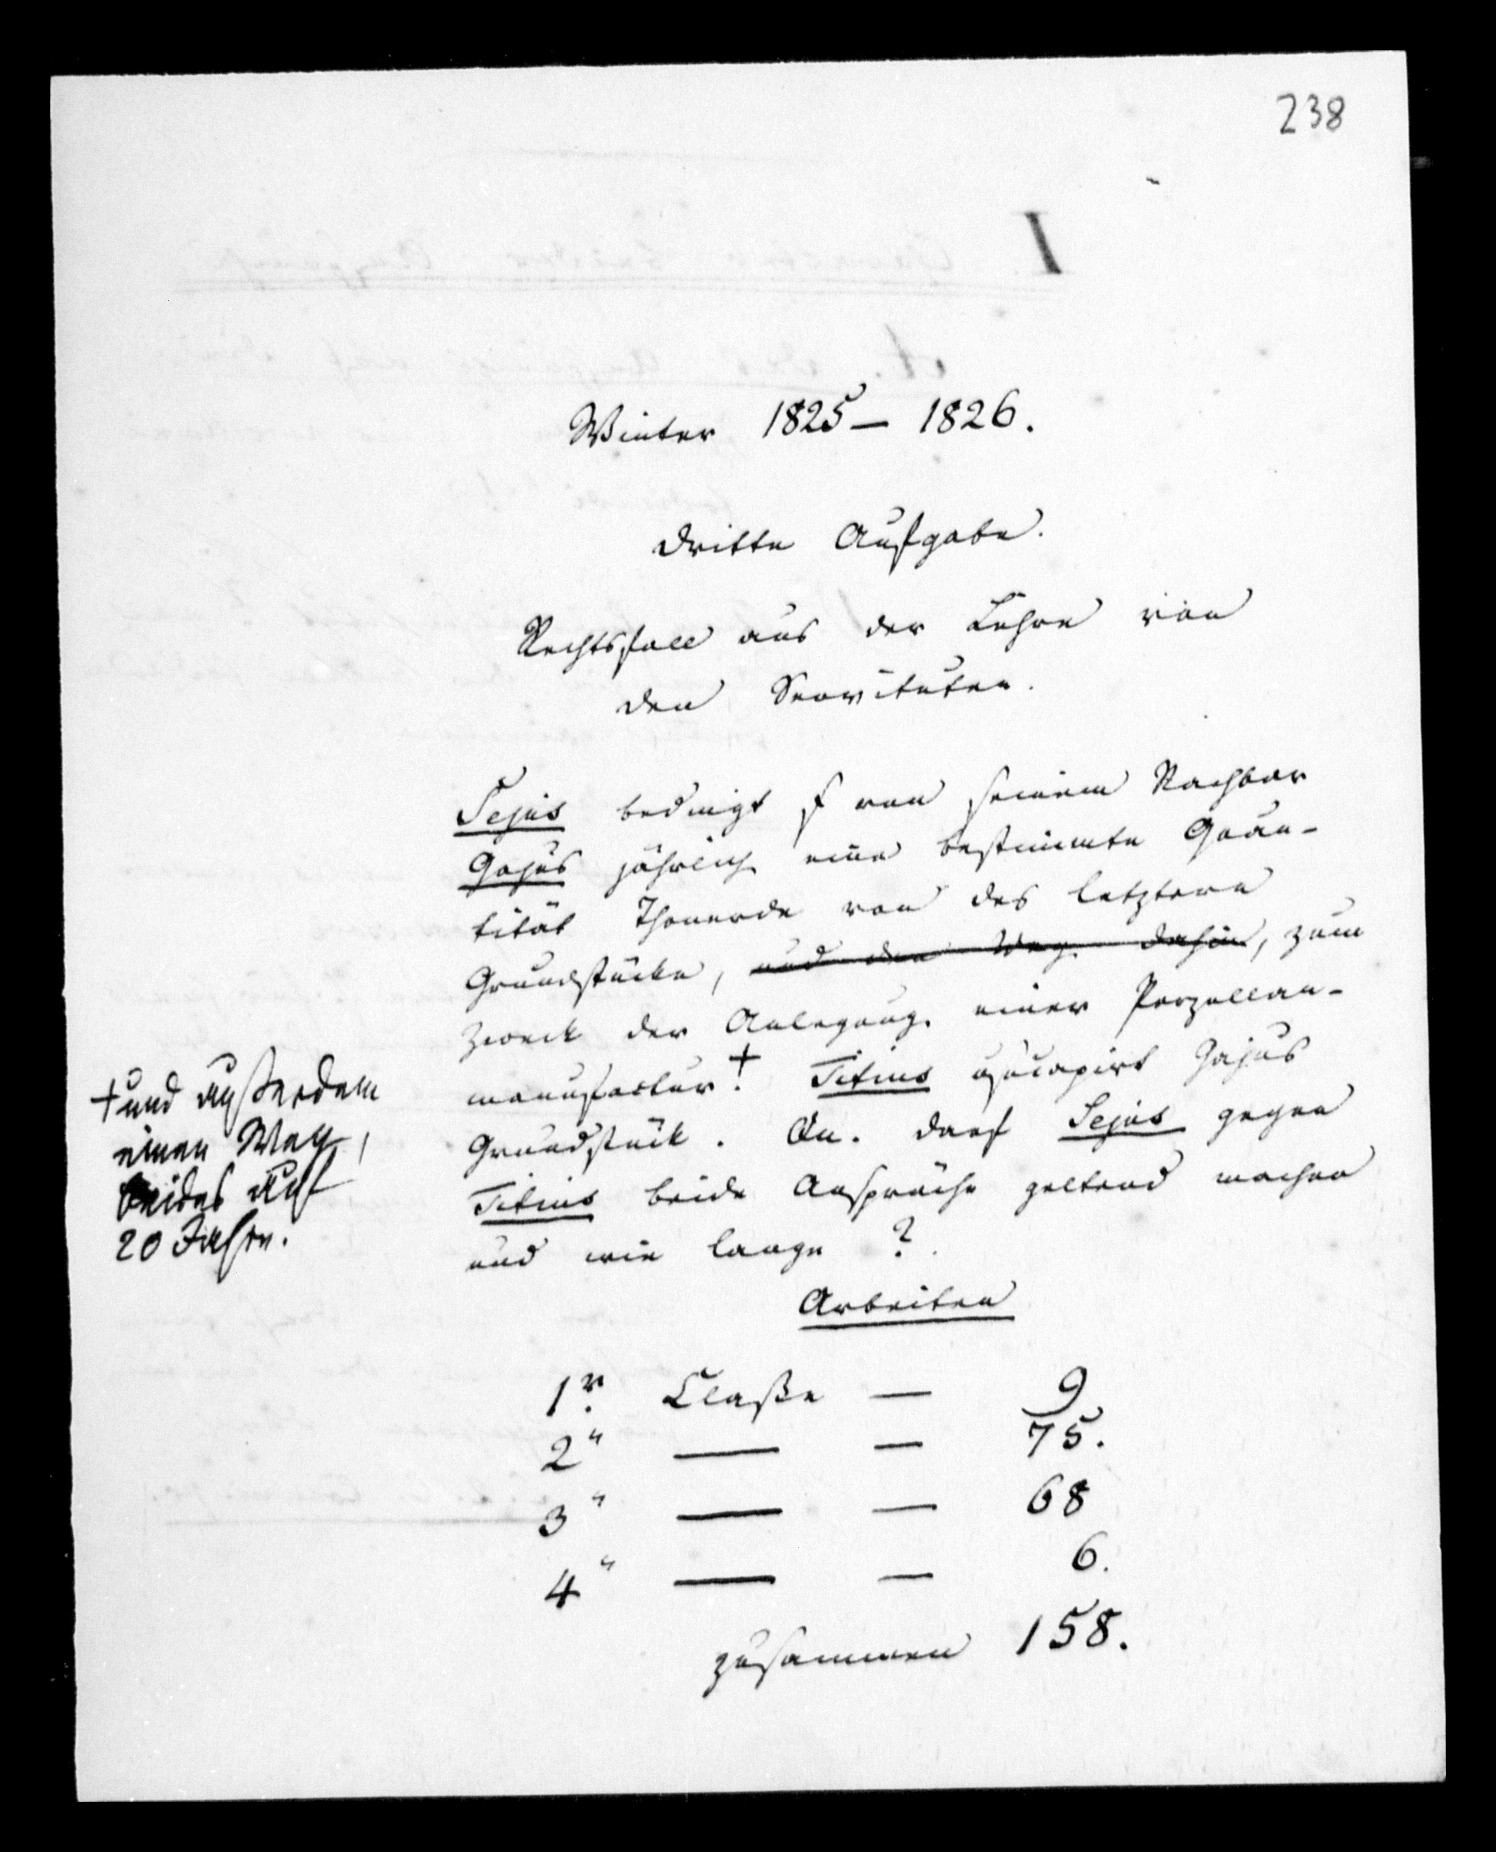 238
Winter 1825 – 1826.
Dritte Aufgabe.
Rechtsfall aus der Lehre von
den Servituten.
Sejus bedingt s. von seinem Nachbar
Gajus jährlich eine bestimmte Quan-
tität Thonerde von des letztern
Grundstücke, und den Weg dahin, zum
Zweck der Anlegung einer Porzellan-
manufactur.+ Titius usucapirt Gajus
Grundstück. Qu. darf Sejus gegen
Titius beide Ansprüche geltend machen
und wie lange?
+ und außerdem
einen Weg,
beides auf
20 Jahre.
Arbeiten
1r. Claße — 9
2" — — 75.
3" — — 68
4" — — 6.
zusammen 158.